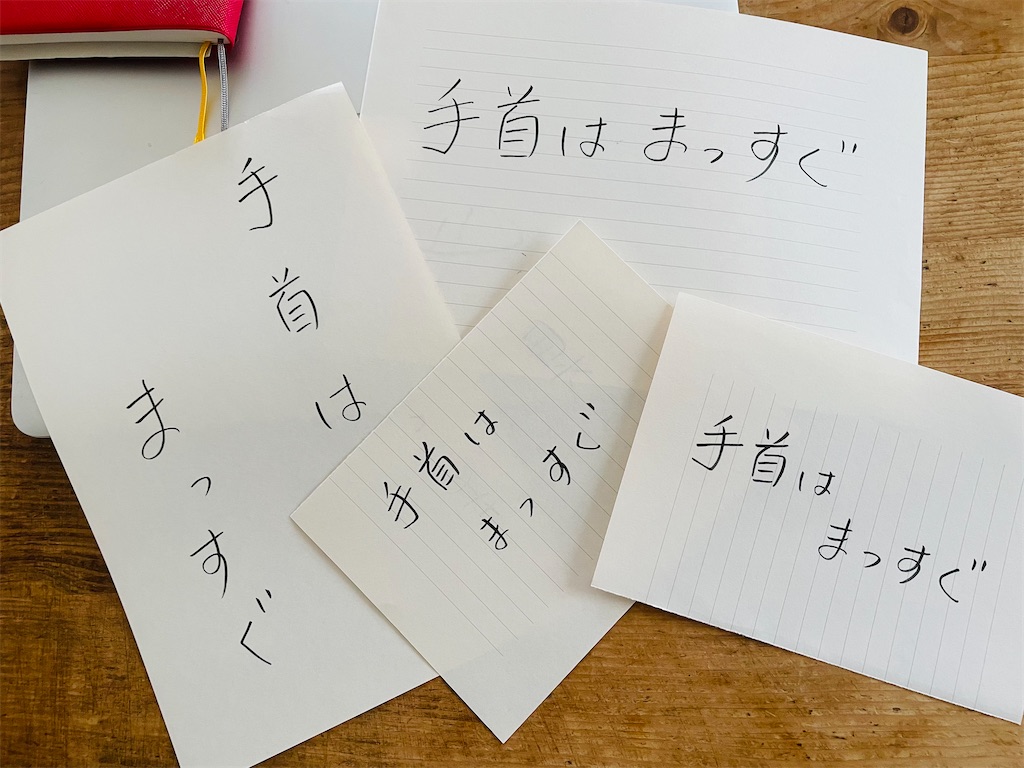 手首は まっすぐ
手首は
まっすぐ
手首は
まっすぐ
手首は
まっすぐ